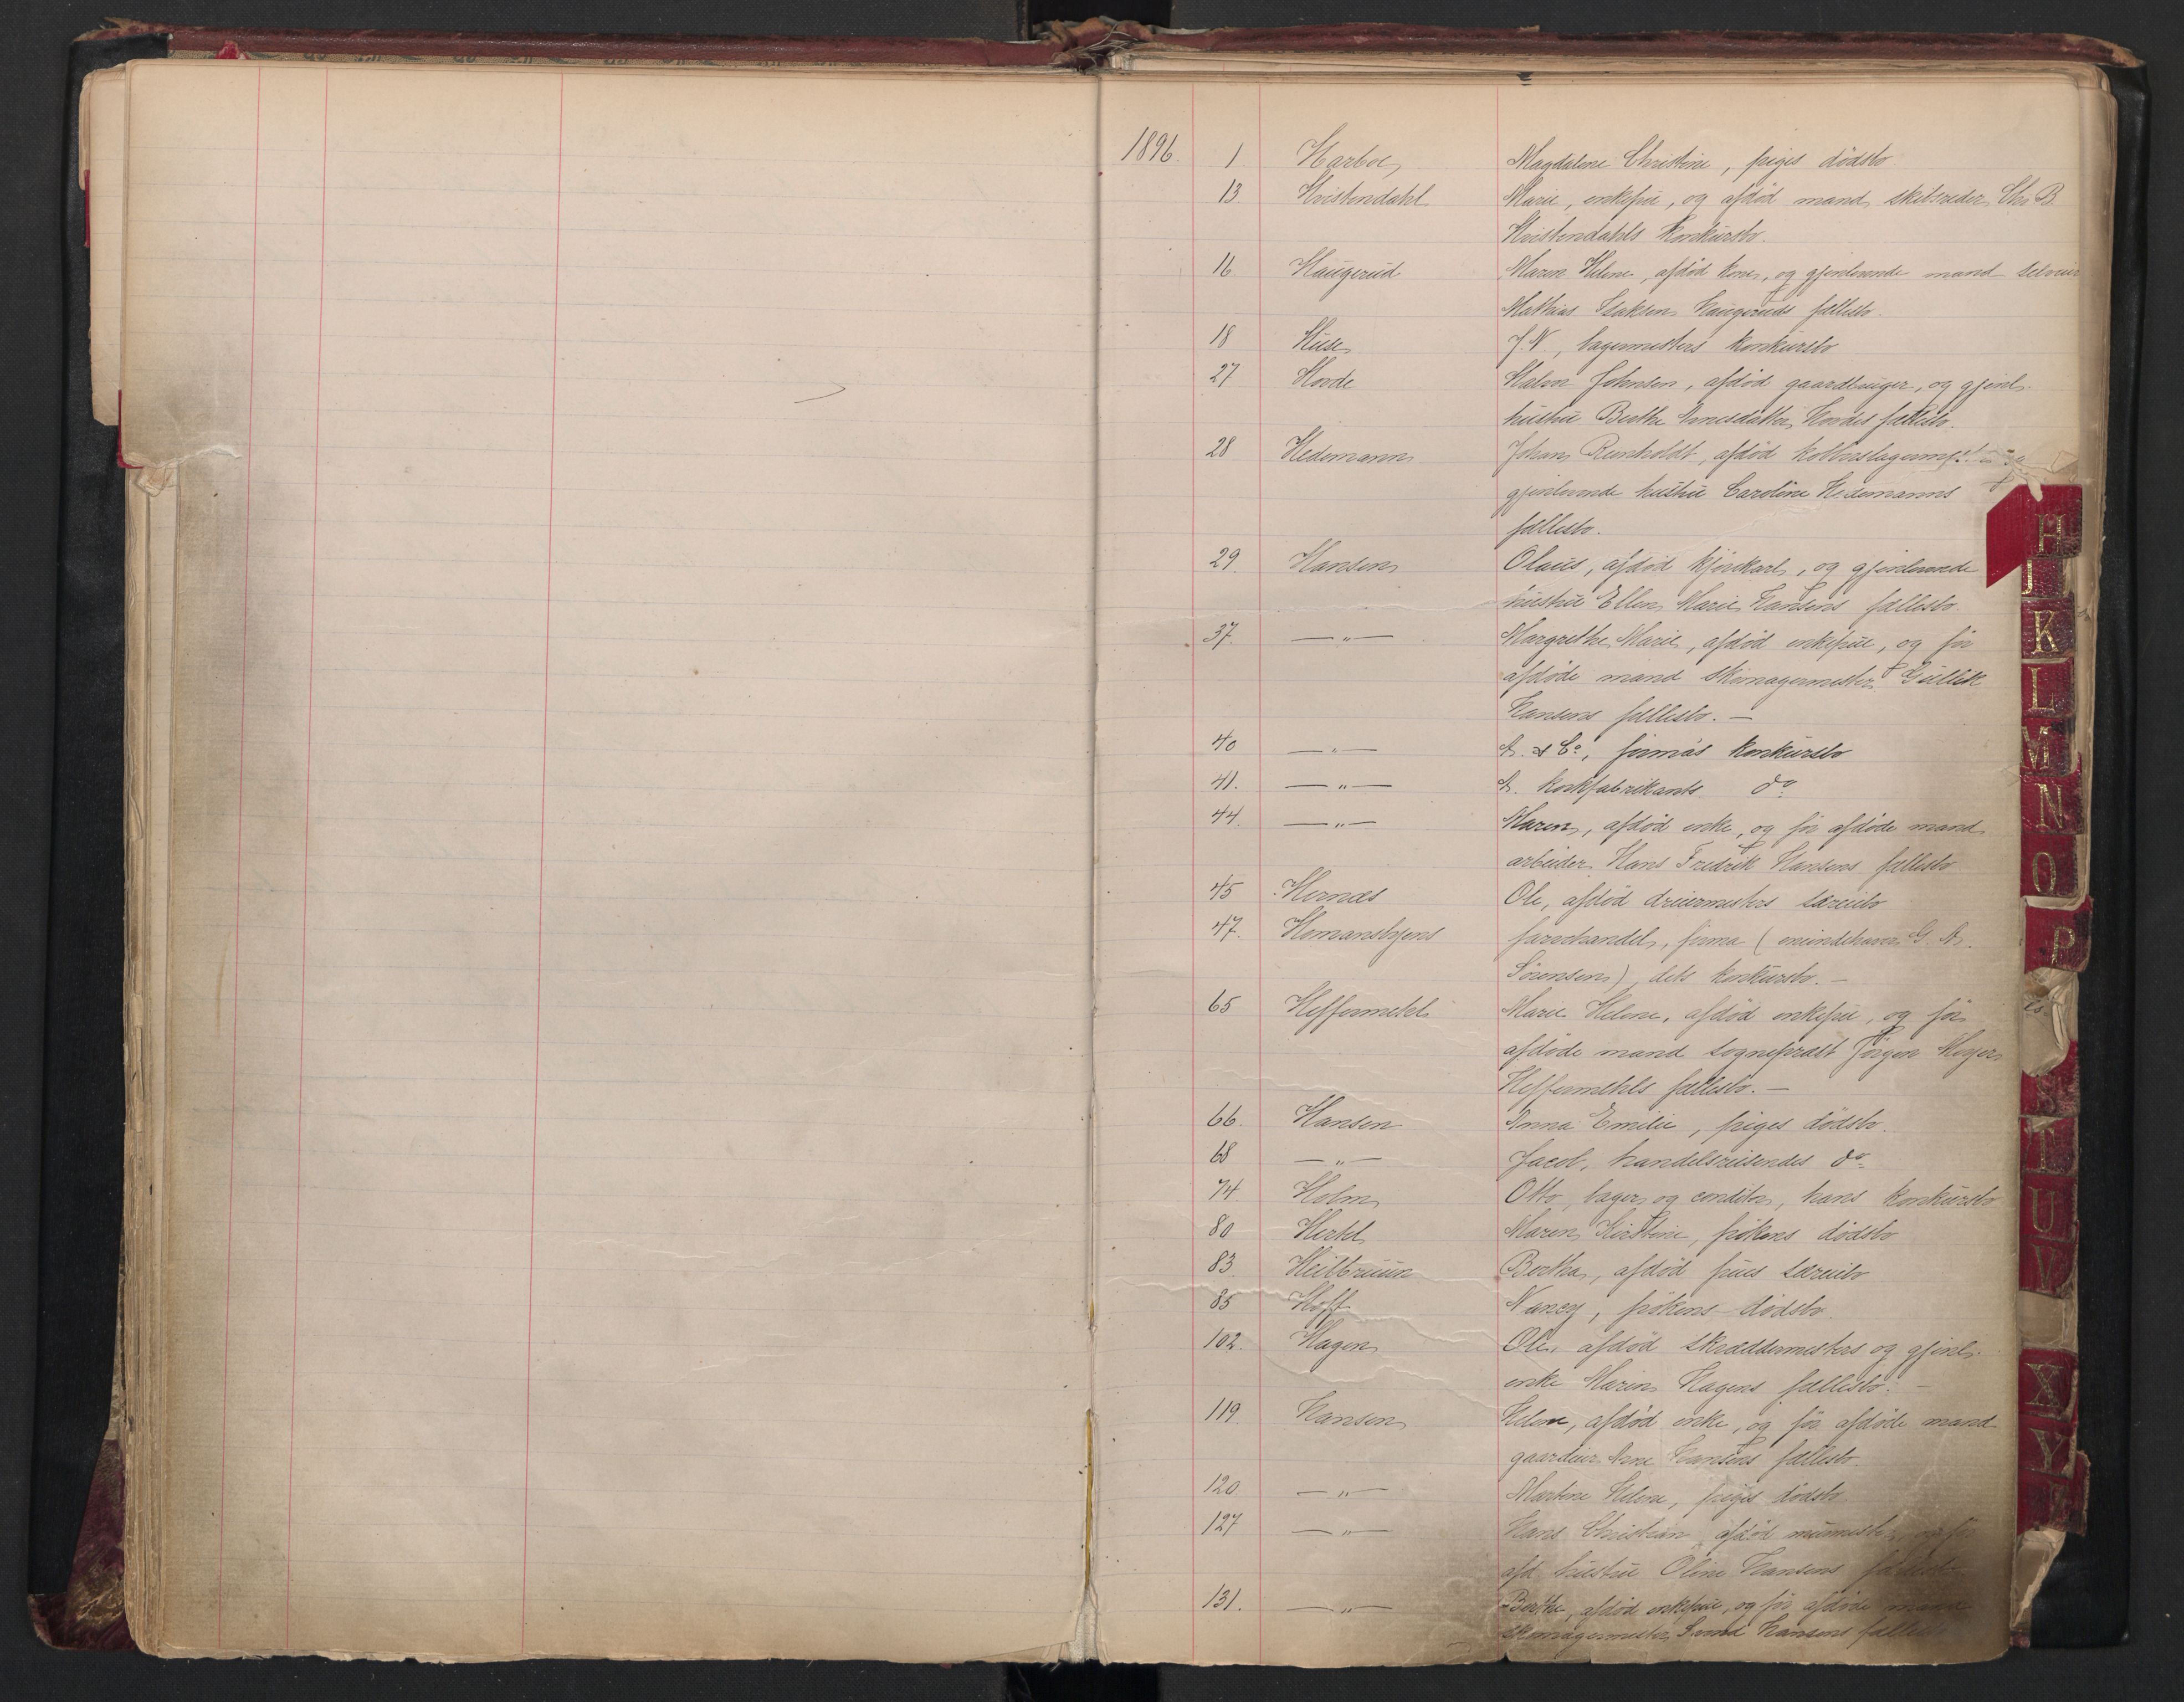 1896. 1 Harboe, Magdalene Christine, piges dödsbo
13 Hvistendahl Marie, enkefrue, og afdöd mand skibsreder Chr. B.
Hvistendahls konkursbo.
16 Haugerud Maren Helene, afdöd kone, og gjenlevende mand selveier
Mathias Isaksen Haugeruds fællesbo.
18 Huse J. N., bagermesters konkursbo
27 Hovde Halvor Johnsen, afdöd gaardbruger, og gjenl.
hustru Berthe Arnesdatter Hovdes fællesbo.
28 Hedemann Johan Reinholdt, afdöd kobberslagermester og
gjenlevende hustru Caroline Hedemanns
fællesbo.
29. Hansen Olaus, afdöd kjörekarl, og gjenlevende
hustru Ellen Marie Hansens fællesbo.
37. —„— Margrethe Marie, afdöd enkefrue, og för
afdöde mand skomagermester Gullik
Hansens fællesbo. —
40 —„— A. & Co, firmas konkursbo
41. —„— A. korkfabrikants do
44. —„— Maren, afdöd enke, og för afdöde mand
arbeider Hans Fredrik Hansens fællesbo
45 Hernæs Ole, afdöd dreiermesters særeiebo
47. Homansbyens farvehandel, firma (eneindehaver G. A.
Sörensen), dets konkursbo. —
65 Heffermehl Marie Helene, afdöd enkefrue, og för
afdöde mand sogneprest Jörgen Meyer
Heffermehls fællesbo. —
66. Hansen Anna Emilie, piges dödsbo.
68 —„— Jacob, handelsreisendes do
74. Holm Otto, bager og conditor, hans konkursbo
80 Hertel Maren Kirstine, frökens dödsbo
83. Heilbruun Bertha, afdöd frues særeiebo
85 Hoff Nancy, frökens dödsbo.
102. Hagen Ole, afdöd skræddermesters og gjenl.
enke Maren Hagens fællesbo. —
119. Hansen Helene, afdöd enke, og för afdöde mand
gaardeier Arne Hansens fællesbo.
120. —„— Martine Helene, piges dödsbo.
127 —„— Hans Christian, afdöd murmester, og för
afd. hustru Oline Hansens fællesbo
131. —„— Berthe, afdöd enkefrue, og för afdöde mand
skomagermester Hansens fællesbo
H
J
K
L
M
N
O
P
S
T
U
V
X
Y